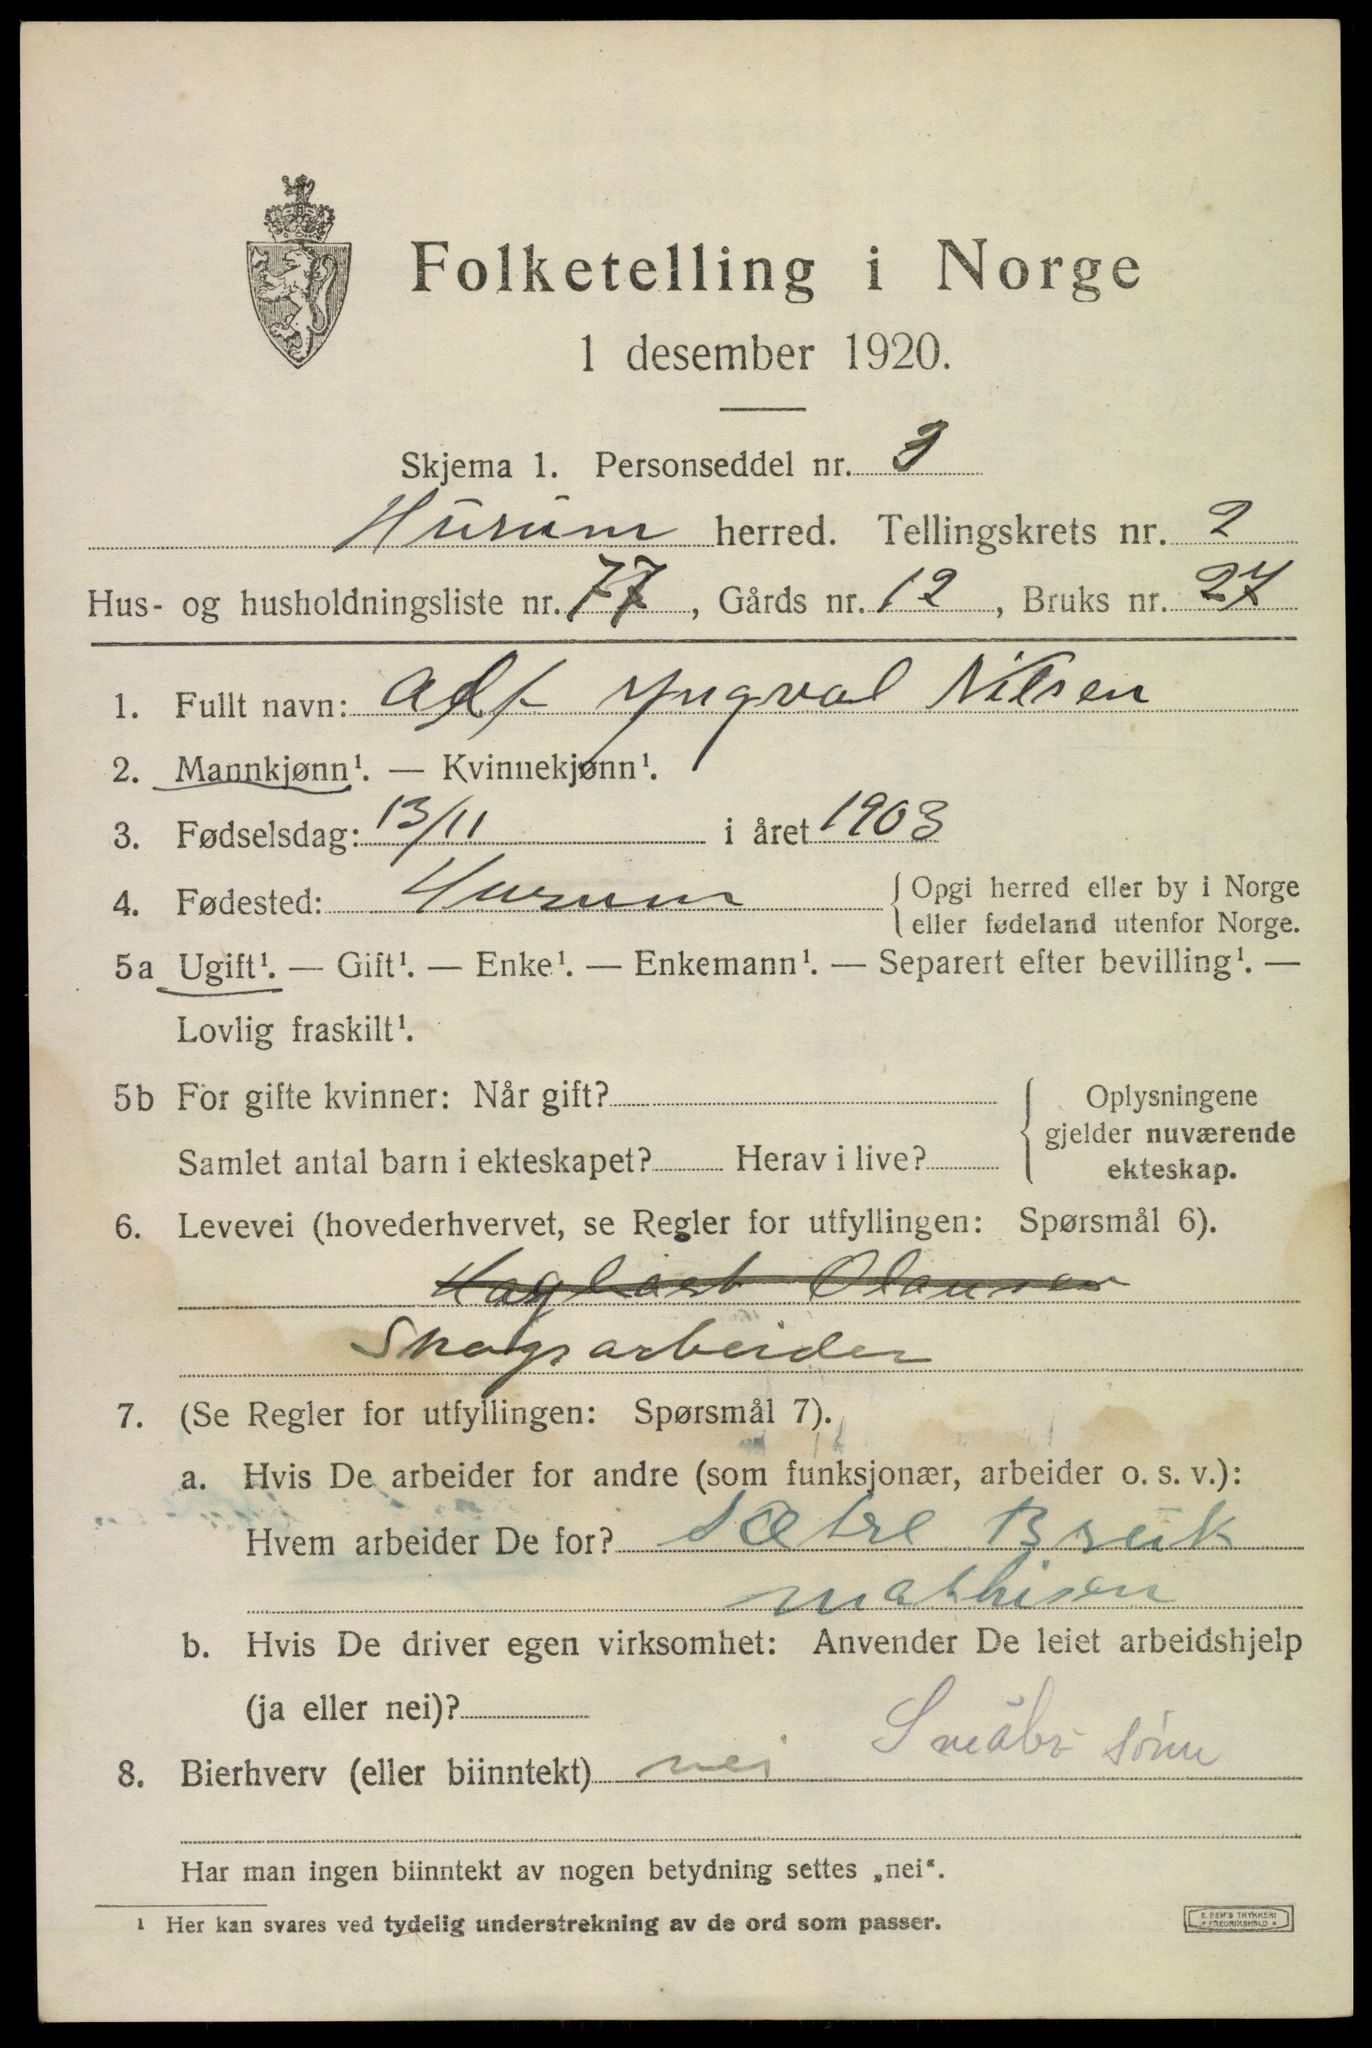 Folketelling i Norge
1 desember 1920.
Skjema 1. Personseddel nr. 3
Hurum herred. Tellingskrets nr. 2
Hus- og husholdningsliste nr. 77, Gårds nr. 12, Bruks nr. 27
1. Fullt navn: Alf Yngval Nilsen
2. Mannkjønn¹. — Kvinnekjønn¹.
3. Fødselsdag: 13/11 i året 1903
4. Fødested: Hurum { Opgi herred eller by i Norge
eller fødeland utenfor Norge.
5a Ugift¹. — Gift¹. — Enke¹. — Enkemann¹. — Separert efter bevilling¹. —
Lovlig fraskilt¹.
5b For gifte kvinner: Når gift? { Oplysningene
gjelder nuværende
Samlet antal barn i ekteskapet? Herav i live?
ekteskap.
6. Levevei (hovederhvervet, se Regler for utfyllingen: Spørsmål 6).
Olausen
Skogsarbeider
7. (Se Regler for utfyllingen: Spørsmål 7).
a. Hvis De arbeider for andre (som funksjonær, arbeider o. s. v.):
Hvem arbeider De for? Sætre Bruk
Mathisen
b. Hvis De driver egen virksomhet: Anvender De leiet arbeidshjelp
(ja eller nei)?
Småbr sønn
8. Bierhverv (eller biinntekt) nei
Har man ingen biinntekt av nogen betydning settes „nei“.
¹ Her kan svares ved tydelig understrekning av de ord som passer.
E. SEM'S TRYKKERI
* FREDRIKSHALD *